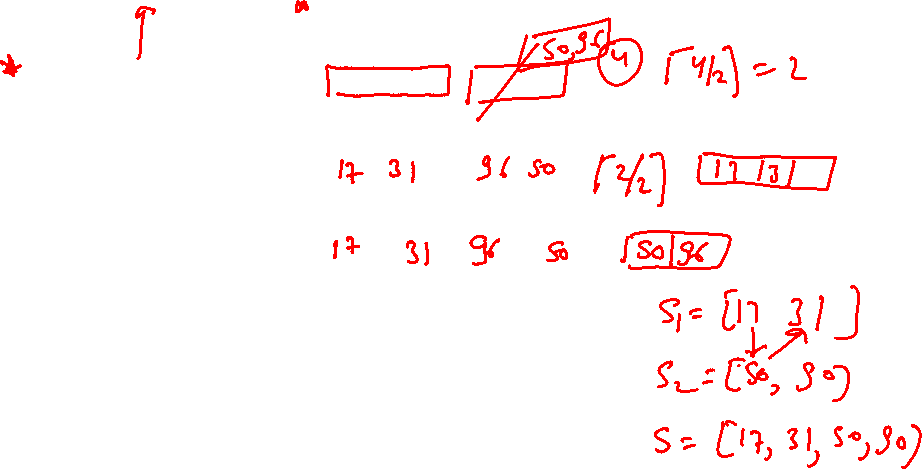 50,96
4 ⌈4/2⌉ = 2
17 31 96 50 ⌈2/2⌉ 17 31
17 31 96 50 50 96
S1 = [17 31]
S2 = [50, 90)
S = [17, 31, 50, 90)